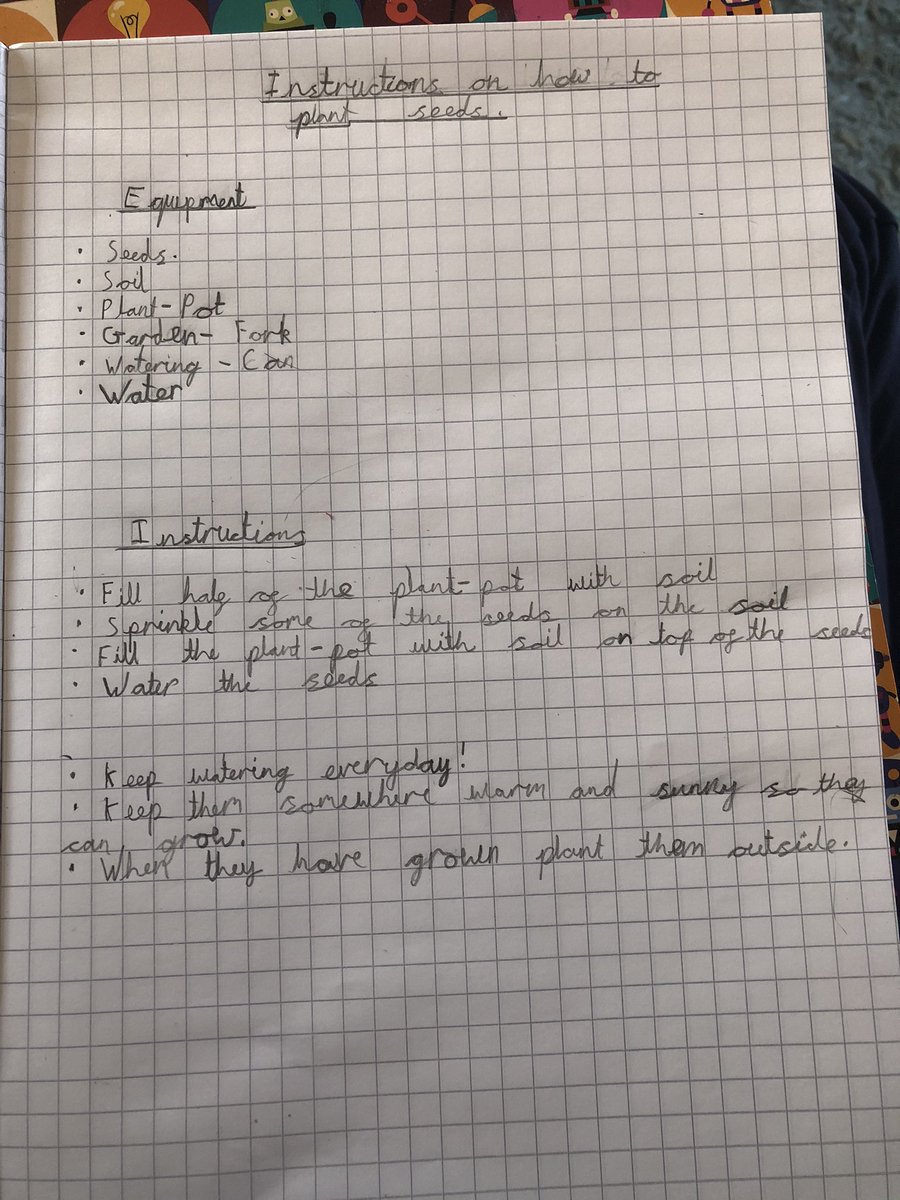 Instructions on how to
plant seeds.
Equipment
· Seeds.
· Soil
· Plant-Pot
· Garden- Fork
· Watering - Can
· Water
Instructions
· Fill half of the plant-pot with soil
· Sprinkle some of the seeds on the soil
· Fill the plant-pot with soil on top of the seeds
· Water the seeds
· Keep watering everyday!
· Keep them somewhere warm and sunny so they
can grow.
· When they have grown plant them outside.